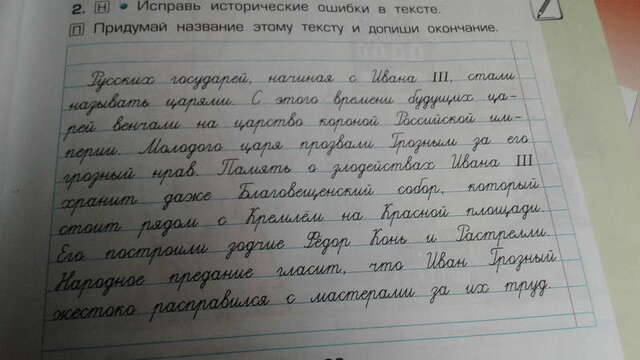 2. Н • Исправь исторические ошибки в тексте.
П Придумай название этому тексту и допиши окончание.
Русских государей, начиная с Ивана III, стали
называть царями. С этого времени будущих ца-
рей венчали на царство короной Российской им-
перии. Молодого царя прозвали Грозным за его
грозный нрав. Память о злодействах Ивана III
хранит даже Благовещенский собор, который
стоит рядом с Кремлём на Красной площади.
Его построили зодчие Фёдор Конь и Растрелли.
Народное предание гласит, что Иван Грозный
жестоко расправился с мастерами за их труд.